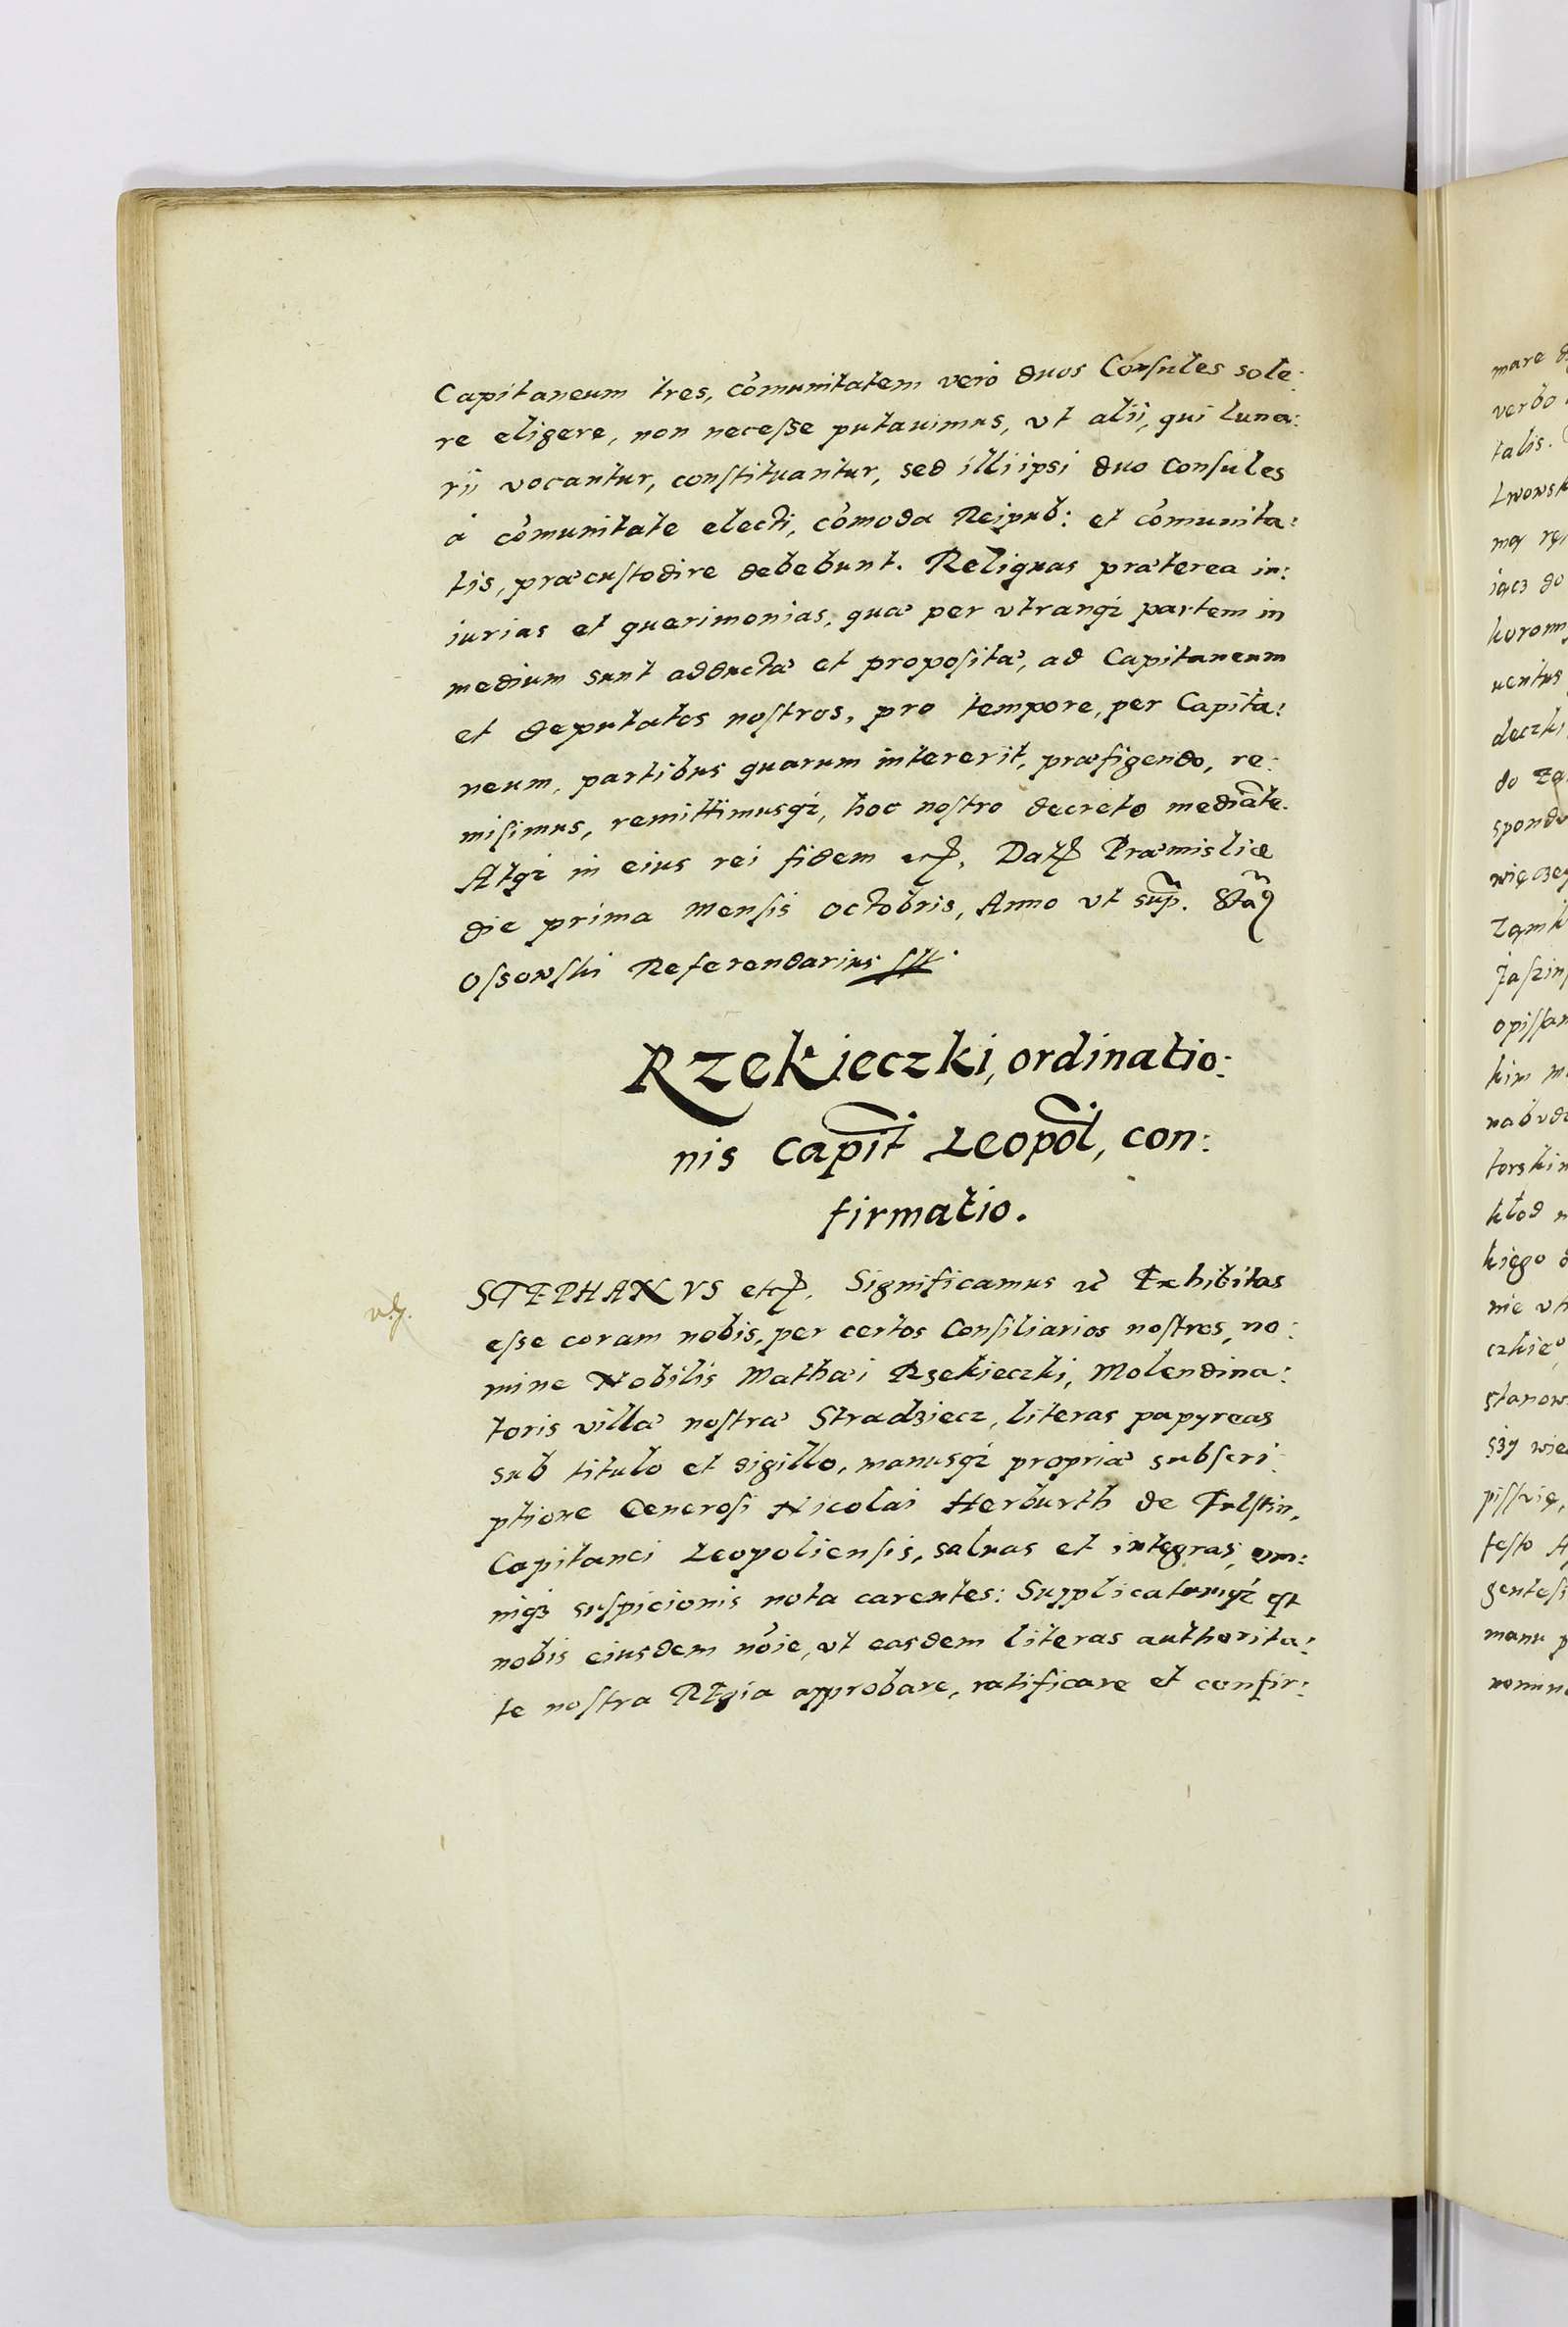 Capitaneum tres, com̃unitatem vero duos Consules sole:
re eligere, non necesse putauimus, vt alii, qui luna:
rii vocantur, constituantur, sed illi ipsi duo Consules
à com̃unitate electi, com̃oda Reipub: et com̃unita:
tis, præcustodire debebunt. Reliquas præterea in:
iurias et querimonias, quæ per vtranqȝ partem in
medium sunt adductæ et propositæ, ad Capitaneum
et deputatos nostros, pro tempore, per Capita:
neum, partibus quarum intererit, præfigendo, re:
misimus, remittimusqȝ, hoc nostro decreto mediãte.
Atqȝ in eius rei fidem etc. Datt Præmisliæ
die prima Mensis Octobris, Anno vt sup̃.
Ossowski Referendarius sst.
Rzekieczki, ordinatio:
nis Capit̃ Leopol̃, con:
firmatio.
STEPHANVS etc. Significamus Exhibitas
esse coram nobis, per certos Consiliarios nostros, no:
mine Nobilis Mathæi Rzekieczki, Molendina:
toris villæ nostræ Stradziecz, literas papyreas
sub titulo et sigillo, manusqȝ propriæ subscri:
ptione Generosi Nicolai Herburth de Fulstin,
Capitanei Leopoliensis, saluas et integras, om:
niqȝ suspicionis nota carentes: Supplicatumqȝ est
nobis eiusdem nõie, vt easdem literas authorita:
te nostra Regia approbare, ratificare et confir:
mare
verbo
talis.
Lwowsk
iącz do
koronn
uentus
deczki
do
spond
więczey
zamk
opissan
kim
torskim
kłod
kięgo
nie
czkie°
stanow
szy wie
pissuię,
festo
gentesi
manu p
nomin